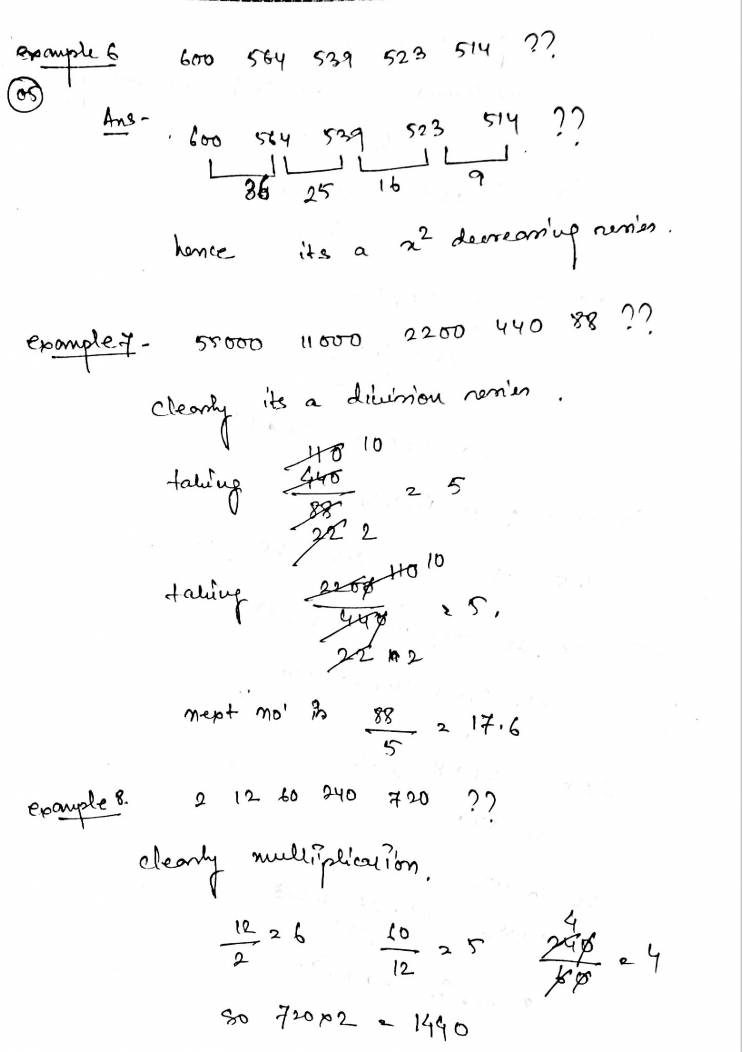 example 6 600 564 539 523 514 ??
05
Ans - 600 564 539 523 514 ??
36 25 16 9
hence its a x² decreasing series.
example 7 - 55000 11000 2200 440 88 ??
clearly its a division series.
110 10
taking 440 = 5
88
22 2
taking 2200 110 10
440 = 5.
22 2
next no' is 88/5 = 17.6
example 8. 2 12 60 240 720 ??
clearly multiplication.
12/2 = 6 60/12 = 5 4 240/60 = 4
so 720×2 = 1440